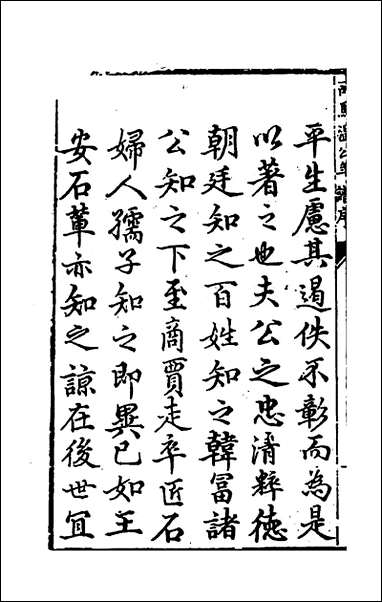 平生慮其遏佚不彰而為是
以著之也夫公之忠清粹德
朝廷知之百姓知之韓冨諸
公知之下至商賈走卒匠石
婦人孺子知之即異已如王
安石軰亦知之諒在後世宜